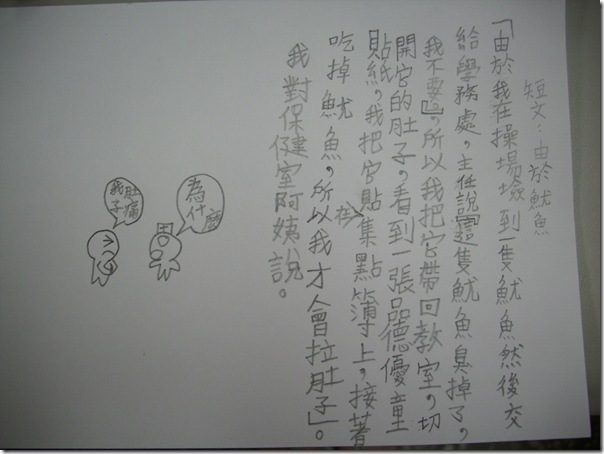 短文：由於魷魚
「由於我在操場撿到一隻魷魚然後交
給學務處，主任說「這隻魷魚臭掉了，
我不要。」，所以我把它帶回教室，切
開它的肚子，看到一張品德優童
貼紙，我把它貼在集點簿上，接著
吃掉魷魚，所以我才會拉肚子」。
我對保健室阿姨說。
為
什麼
我肚
子痛